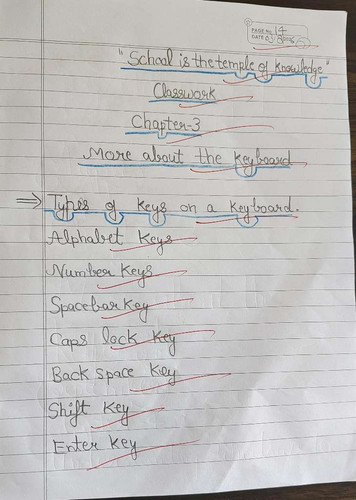 PAGE NO. 4
DATE
"School is the temple of knowledge"
Classwork
Chapter-3
More about the keyboard
⇒ Types of keys on a keyboard.
Alphabet Keys
Number Keys
Spacebar Key
Caps lock Key
Back space Key
Shift Key
Enter Key